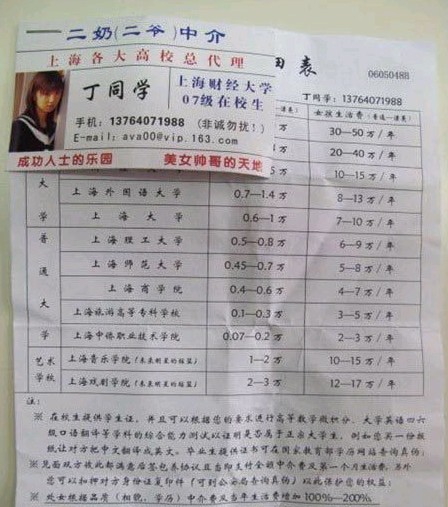 二奶(二爷)中介
上海各大高校总代理
丁同学
上海财经大学
07级在校生
手机:13764071988 (非诚勿扰!)
E-mail: ava00@vip.163.com
成功人士的乐园 美女帅哥的天地
表
06050488
丁同学:13764071988
女孩生活费
万 30—50万/年
万 20—40万/年
5万 10—15万/年
大学
上海外国语大学 0.7—1.4万 8—13万/年
上海大学 0.6—1万 7—10万/年
普通大学
上海理工大学 0.5—0.8万 6—9万/年
上海师范大学 0.45—0.7万 5—8万/年
上海商学院 0.4—0.6万 4—7万/年
上海旅游高等专科学校 0.1—0.3万 3—5万/年
上海中侨职业技术学院 0.07—0.2万 2—3万/年
艺术学校
上海音乐学院(未来明星的摇篮) 1—2万 10—15万/年
上海戏剧学院(未来明星的摇篮) 2—3万 12—17万/年
注:
※ 在校生提供学生证,并且可以根据您的要求进行高等数学微积分、大学英语四六
级口语翻译等学科的综合能力测试以证明是否属于正宗大学生,例如您买一份报
纸让对方把中文翻译成英文。毕业生提供证书可在国家教育部学历网站查询真伪;
※ 见面双方彼此都满意后签包养协议且当即支付全额中介费及第一个月生活费,另外
您可以扣押对方身份证复印件(可到公安局查询真伪)以此保护您的权益;
※ 处女根据品质(相貌、学历)中介费及当年生活费增加100%—200%